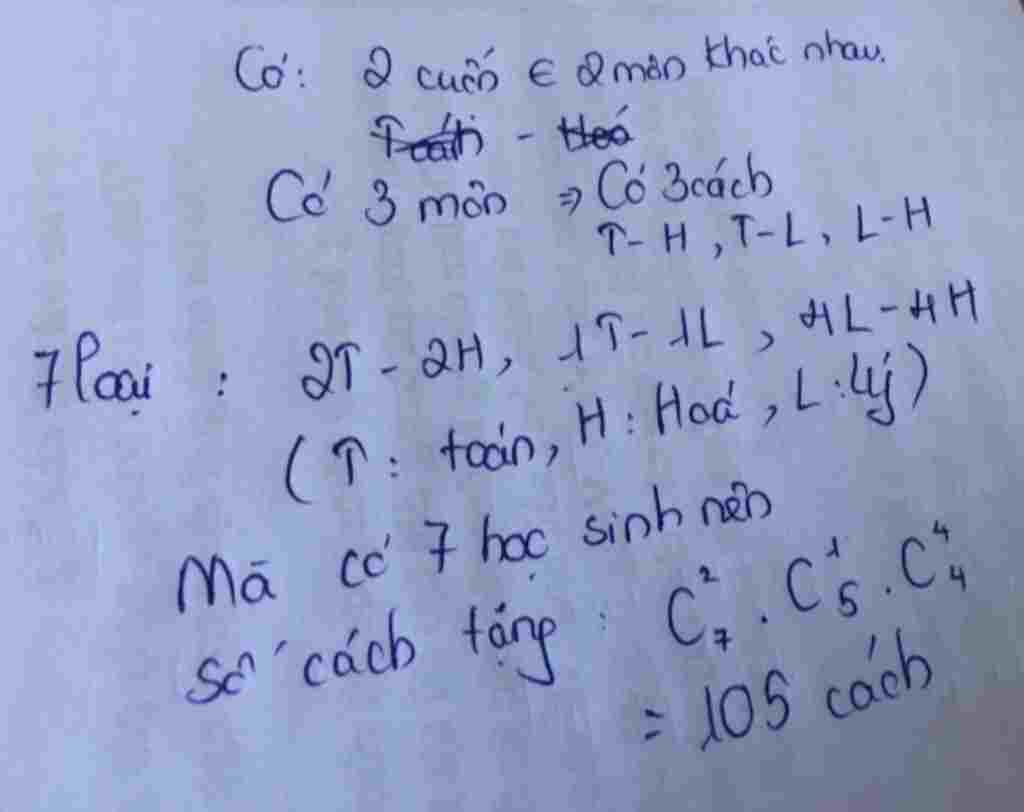 Có: 2 cuốn ∈ 2 môn khác nhau.
Toán - Hoá
Có 3 môn ⇒ Có 3 cách
T-H, T-L, L-H
7 loại : 2T - 2H, 1T - 1L, 4L - 4H
(T: toán, H: Hoá, L: Lý)
Mà có 7 học sinh nên
số cách tặng : C₇² . C₅¹ . C₄⁴
= 105 cách